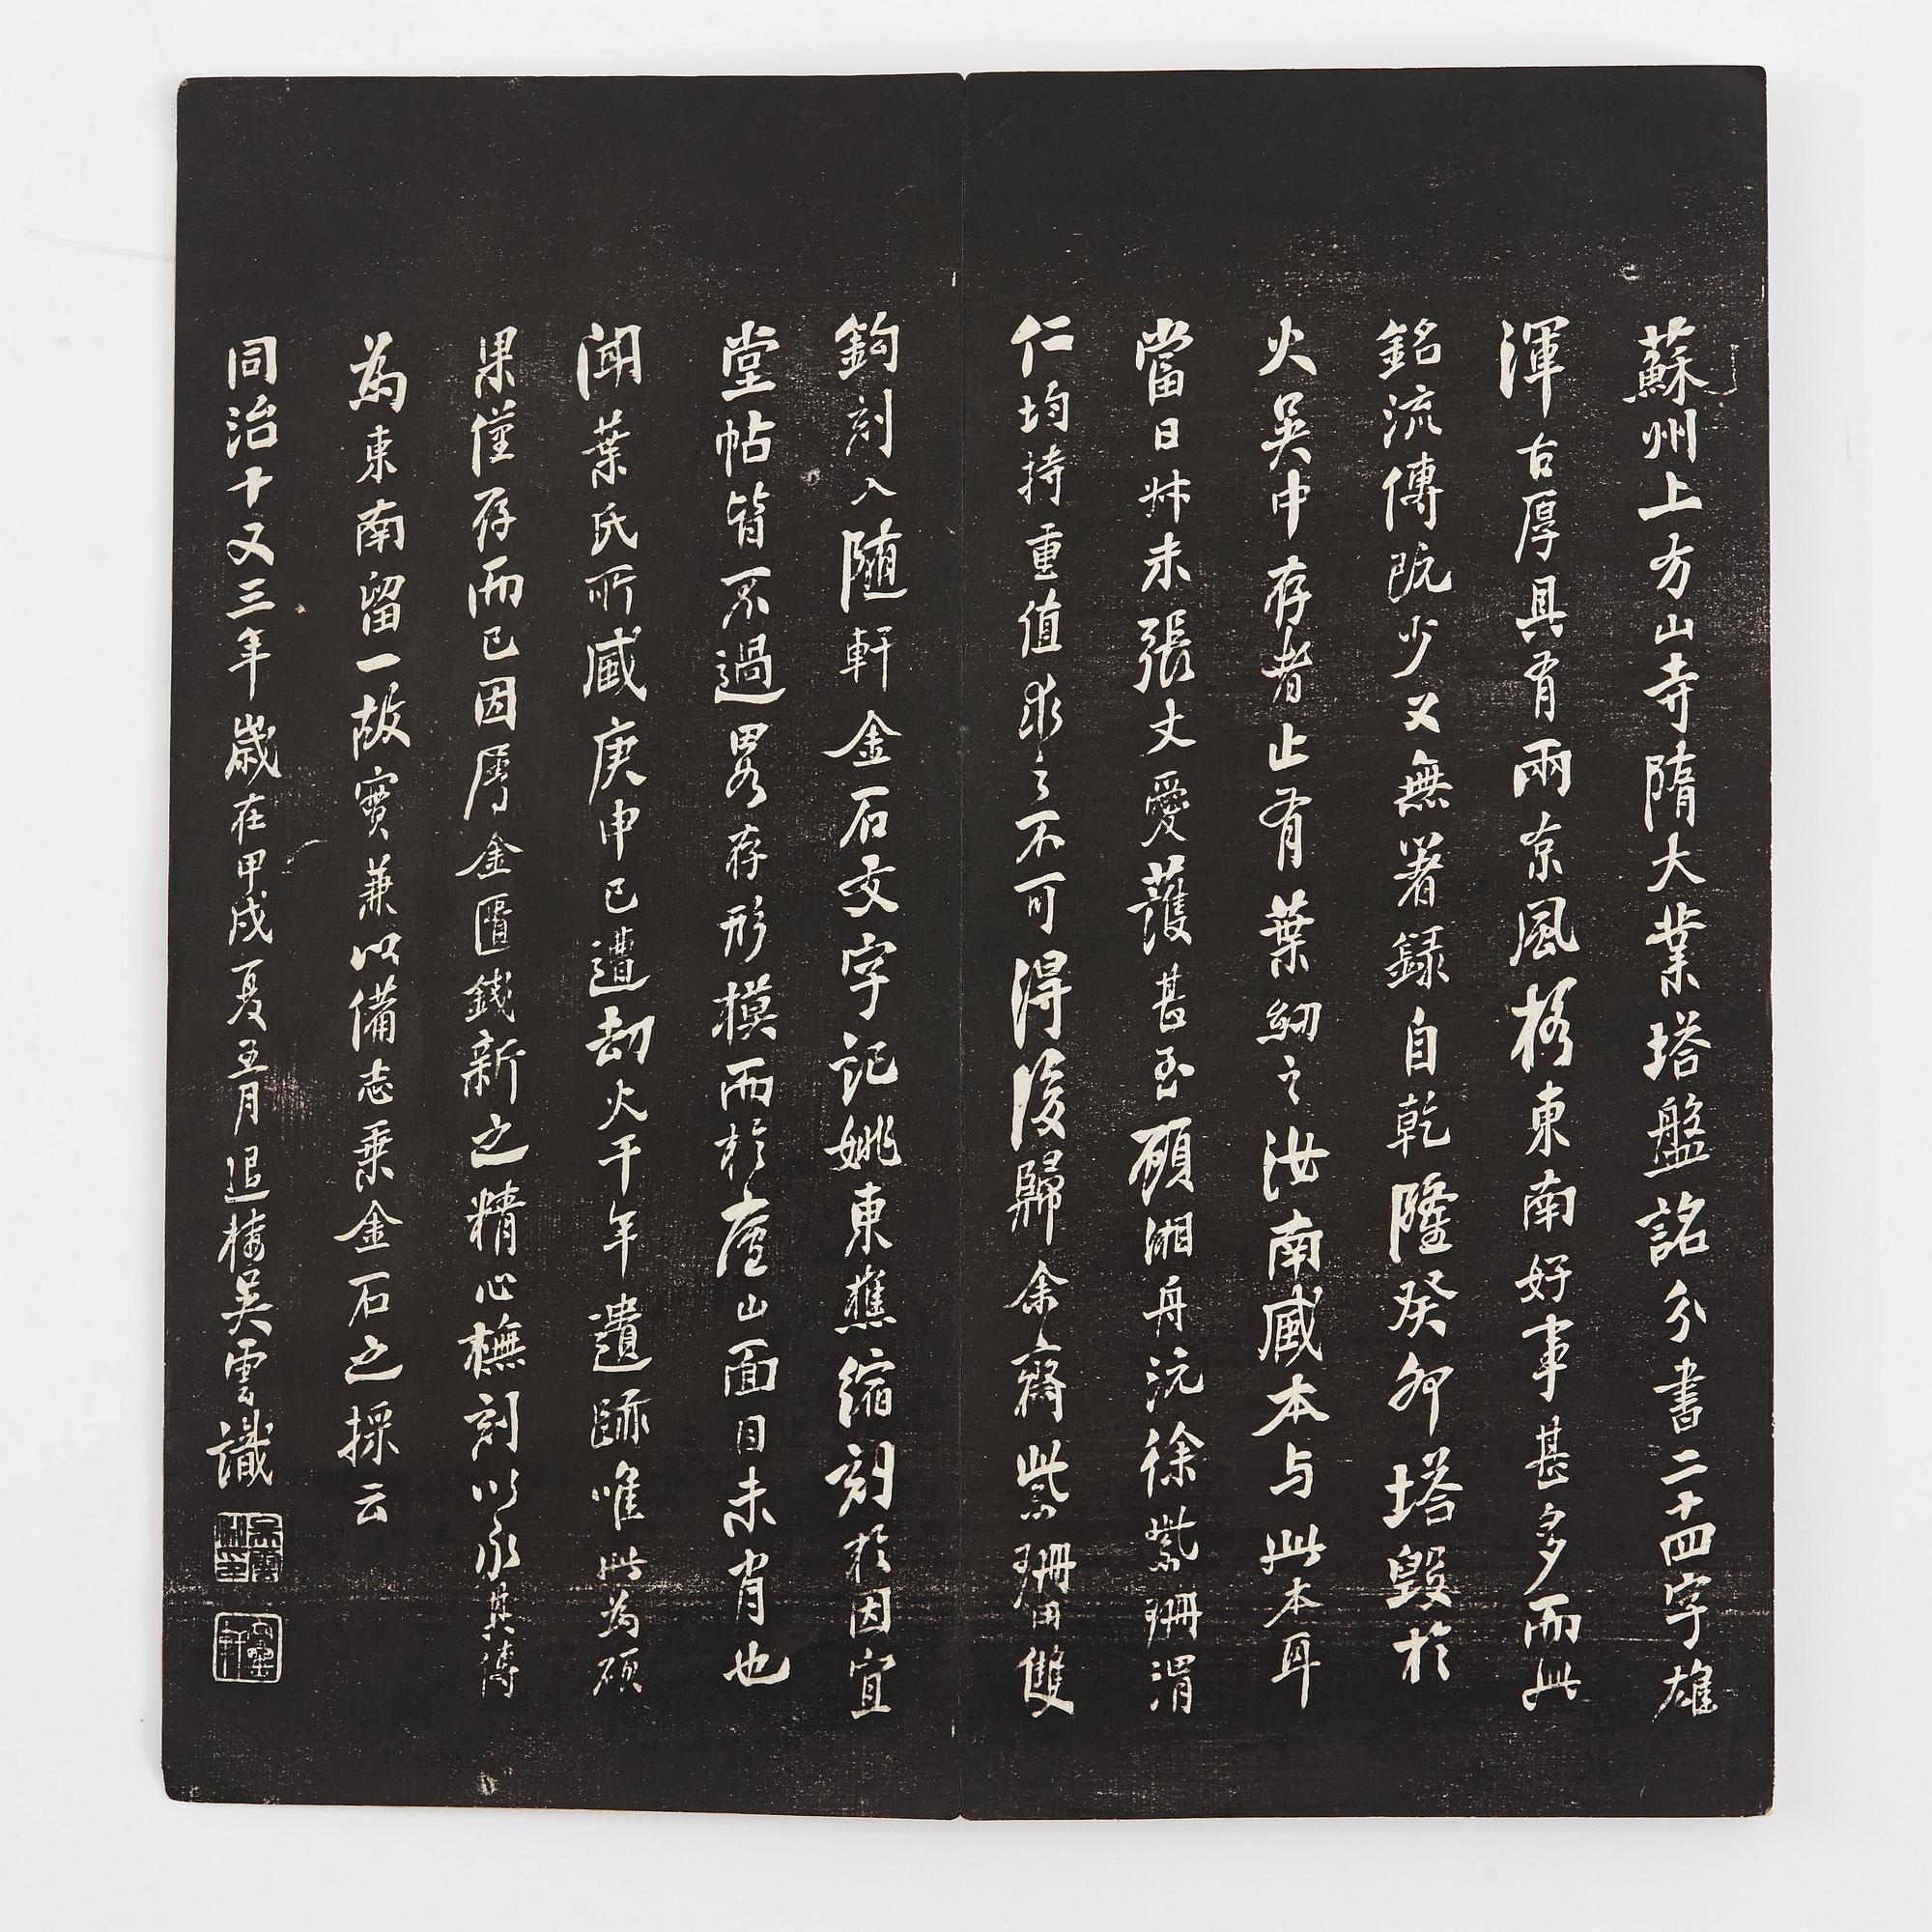 蘇州上方山寺隋大業塔盤銘分書二十四字雄
渾古厚具有兩京風格東南好事甚多而此
銘流傳既少又無著録自乾隆癸卯塔毀於
火吳中存者止有葉紉之汝南臧本与此本耳
當日卅未張丈愛護甚至顧湘舟沅徐紫珊渭
仁均持重值求之不可得後歸余齋紫珊曾雙
鉤刻入隨軒金石文字記姚東樵縮刻於因宜
堂帖皆不過畧存形模而於廬山面目未肖也
聞葉氏所臧庚申已遭劫火千年遺跡唯此為碩
果僅存而已因屬金匱錢新之精心橅刻以永其傳
為東南留一故實兼以備志乘金石之採云
同治十又三年歲在甲戌夏五月退樓吳雲識